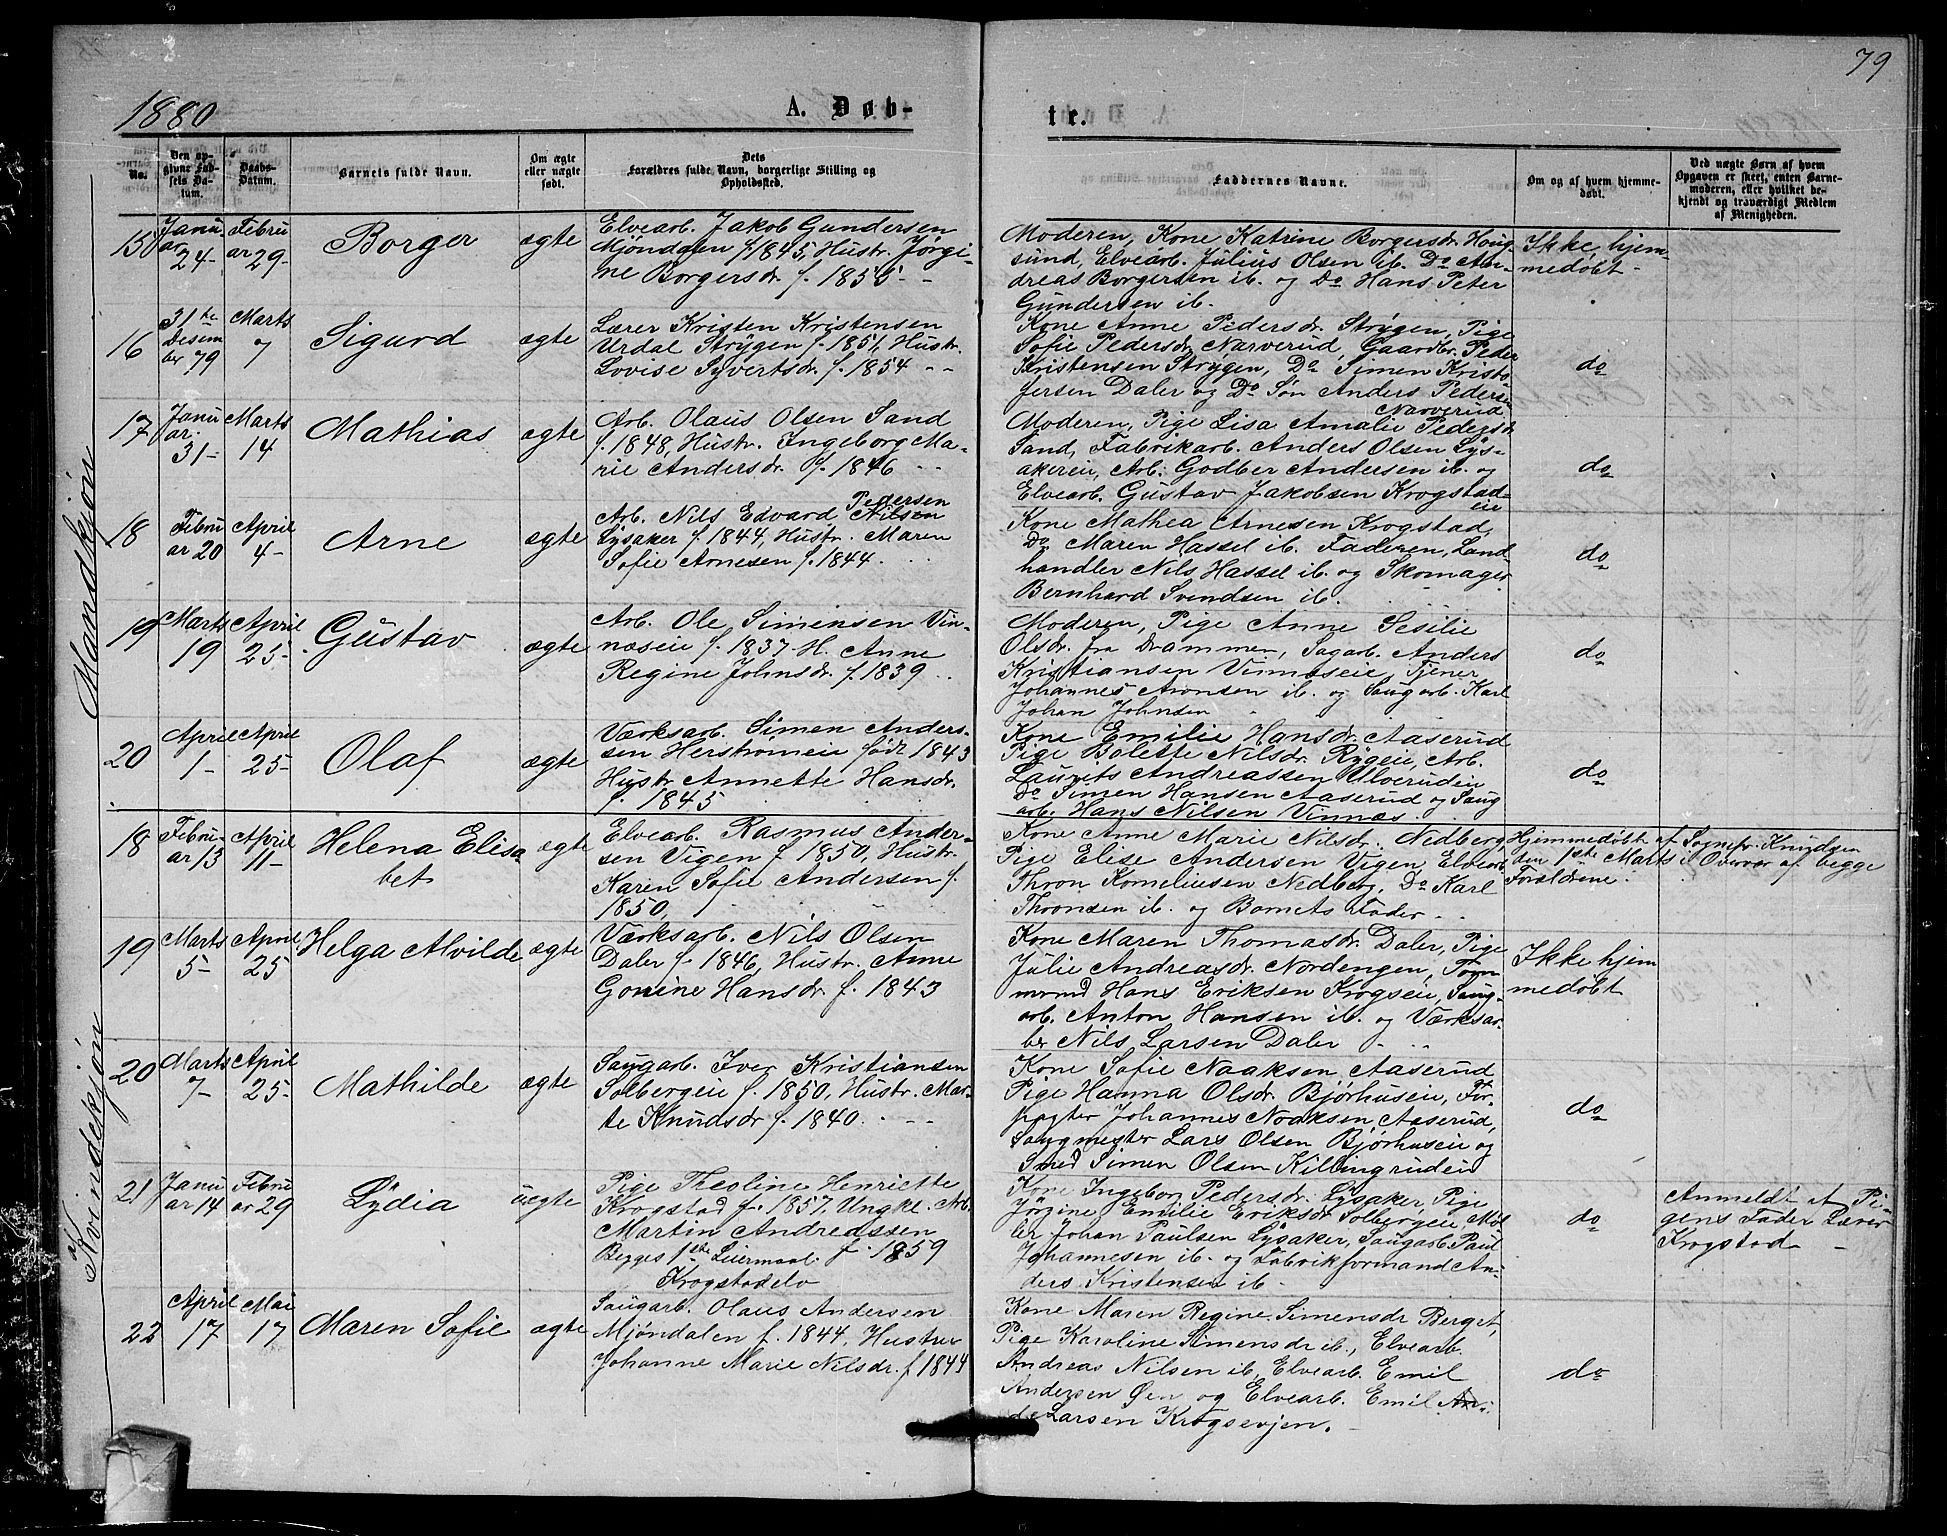 79
1880
A. Døb-
te.
No.
Den op-
givne Fød-
sels Da-
tum
Daabs-
Datum.
Barnets fulde Navn.
Om ægte
eller uægte
født.
Dets
Forældres fulde Navn, borgerlige Stilling og
Opholdssted.
Faddernes Navne.
Om og af hvem hjemme-
døbt.
Ved uægte Børn af hvem
Opgaven er skeet, enten Barne-
moderen, eller hvilket be-
kjendt og troværdigt Medlem
af Menigheden.
Mandkjøn
15
Janu
ar
24-
Febru
ar 29-
Borger
ægte
Elvearb. Jakob Gundersen
Mjøndalen f. 1845, Hustr. Jørgi-
ne Borgersdr. f. 1855 - -
Moderen, Kone Katrine Borgersdr. Houg-
sund, Elvearb. Julius Olsen ib. Do An-
dreas Borgersen ib. og Do Hans Peter
Gundersen ib.
Ikke hjem-
medøbt -
16
31te
Desem
ber 79
Marts
7
Sigurd
ægte
Lærer Kristen Kristensen
Urdal Strygen f. 1851, Hustr.
Lovise Syvertsdr. f. 1854 - -
Kone Anne Pedersdr. Strygen, Pige
Sofie Pedersdr. Narverud, Gaardbr. Peder
Kristensen Strygen, Do Simen Kristo
fersen Daler og Do Søn Anders Pedersen
Narverud
do
17
Janu
ar
31-
Marts
14
Mathias
ægte
Arb. Olaus Olsen Sand
f. 1848, Hustr. Ingeborg Ma-
rie Andersdr. f. 1846 - -
Moderen, Pige Lisa Amalie Pedersdr.
Sand, Fabrikarb. Anders Olsen Lys-
akereie, Arb. Godber Andersen ib. og
Elvearb. Gustav Jakobsen Krogstad-
eie
do
18
Febru
ar 20
April
4-
Arne
ægte
Pedersen
Arb. Nils Edvard Nilsen
Lysaker f. 1844, Hustr. Maren
Sofie Arnesen f. 1844.
Kone Mathea Arnesen Krogstad,
Do Maren Hassel ib. Faderen, Land
handler Nils Hassel ib. og Skomager
Bernhard Svendsen ib.
do
19
Marts
19
April
25-
Gustav
ægte
Arb. Ole Simensen Vin-
næseie f. 1837 H. Anne
Regine Johnsdr. f. 1839
Moderen, Pige Anne Sesilie
Olsdr. fra Drammen, Sagarb. Anders
Kristiansen Vinnæseie, Tjener
Johannes Aronsen ib. og Saugarb. Karl
Johan Johnsen
do
20
April
1-
April
25-
Olaf
ægte
Værksarb. Simen Anders-
sen Herstrømeie født 1843
Hustr. Annette Hansdr.
f. 1845
Kone Emilie Hansdr. Aaserud
Pige Bolette Nilsdr. Rygeie, Arb.
Laurits Andreassen Ulverudeie
Do Simen Hansen Aaserud og Saug
arb. Hans Nilsen Vinnæs
do
Kvindekjøn
18
Febru-
ar 13
April
11-
Helena Elisa
bet
ægte
Elvearb. Rasmus Ander-
sen Vigen f. 1850, Hustr.
Karen Sofie Andersen f.
1850,
Kone Anne Marie Nilsdr. Nedberg,
Pige Elise Andersen Vigen Elvearb
Thron Korneliusen Nedberg, Do Karl
Thronsen ib. og Barnets Fader - -
Hjemmedøbt af Sognepr. Knudsen
den 1ste Marts i Overvær af begge
Forældrene.
19
Marts
5-
April
25
Helga Alvilde
ægte
Værksarb. Nils Olsen
Daler f. 1846, Hustr. Anne
Gonine Hansdr. f. 1843
Kone Maren Thomasdr. Daler, Pige
Julie Andreasdr. Nordengen, Tøm
mermd Hans Eriksen Krogseie, Saug-
arb. Anton Hansen ib. og Værksar-
ber Nils Larsen Daler -
Ikke hjem
medøbt
20
Marts
7-
April
25-
Mathilde
ægte
Saugarb. Iver Kristiansen
Solbergeie f. 1850, Hustr. Mar-
te Knudsdr f. 1840. - -
Kone Sofie Naaksen Aaserud
Pige Hanna Olsdr. Bjørhuseie, For-
pagter Johannes Noaksen Aaserud,
Saugmester Lars Olsen Bjørhuseie og
Smed Simen Olsen Killingrudeie
do
21
Janu
ar 14
Febru
ar 29
Lydia
uægte
Pige Theoline Henriette
Krogstad f. 1857, Ungk. Arb.
Martin Andreassen
Begges 1ste Leiermaal. f. 1859
Krogstadelv
Kone Ingebor Pedersdr. Lysaker, Pige
Jørgine Emilie Eriksdr. Solbergeie, Møl
ler Johan Paulsen Lysaker, Saugarb. Paul
Johannesen ib. og Fabrikformand An-
ders Kristensen ib.
do
Anmeldt af Pi-
gens Fader Lærer
Krogstad -
22
April
17
Mai
17
Maren Sofie
ægte
Saugarb. Olaus Andersen
Mjøndalen f. 1844, Hustru
Johanne Marie Nilsdr. f 1844
Kone Maren Regine Simensdr Berget,
Pige Karoline Simensdr ib., Elvearb.
Andreas Nilsen ib, Elvearb. Emil
Andersen Øen og Elvearb. Emil An-
de Larsen Krogsevjen.
do